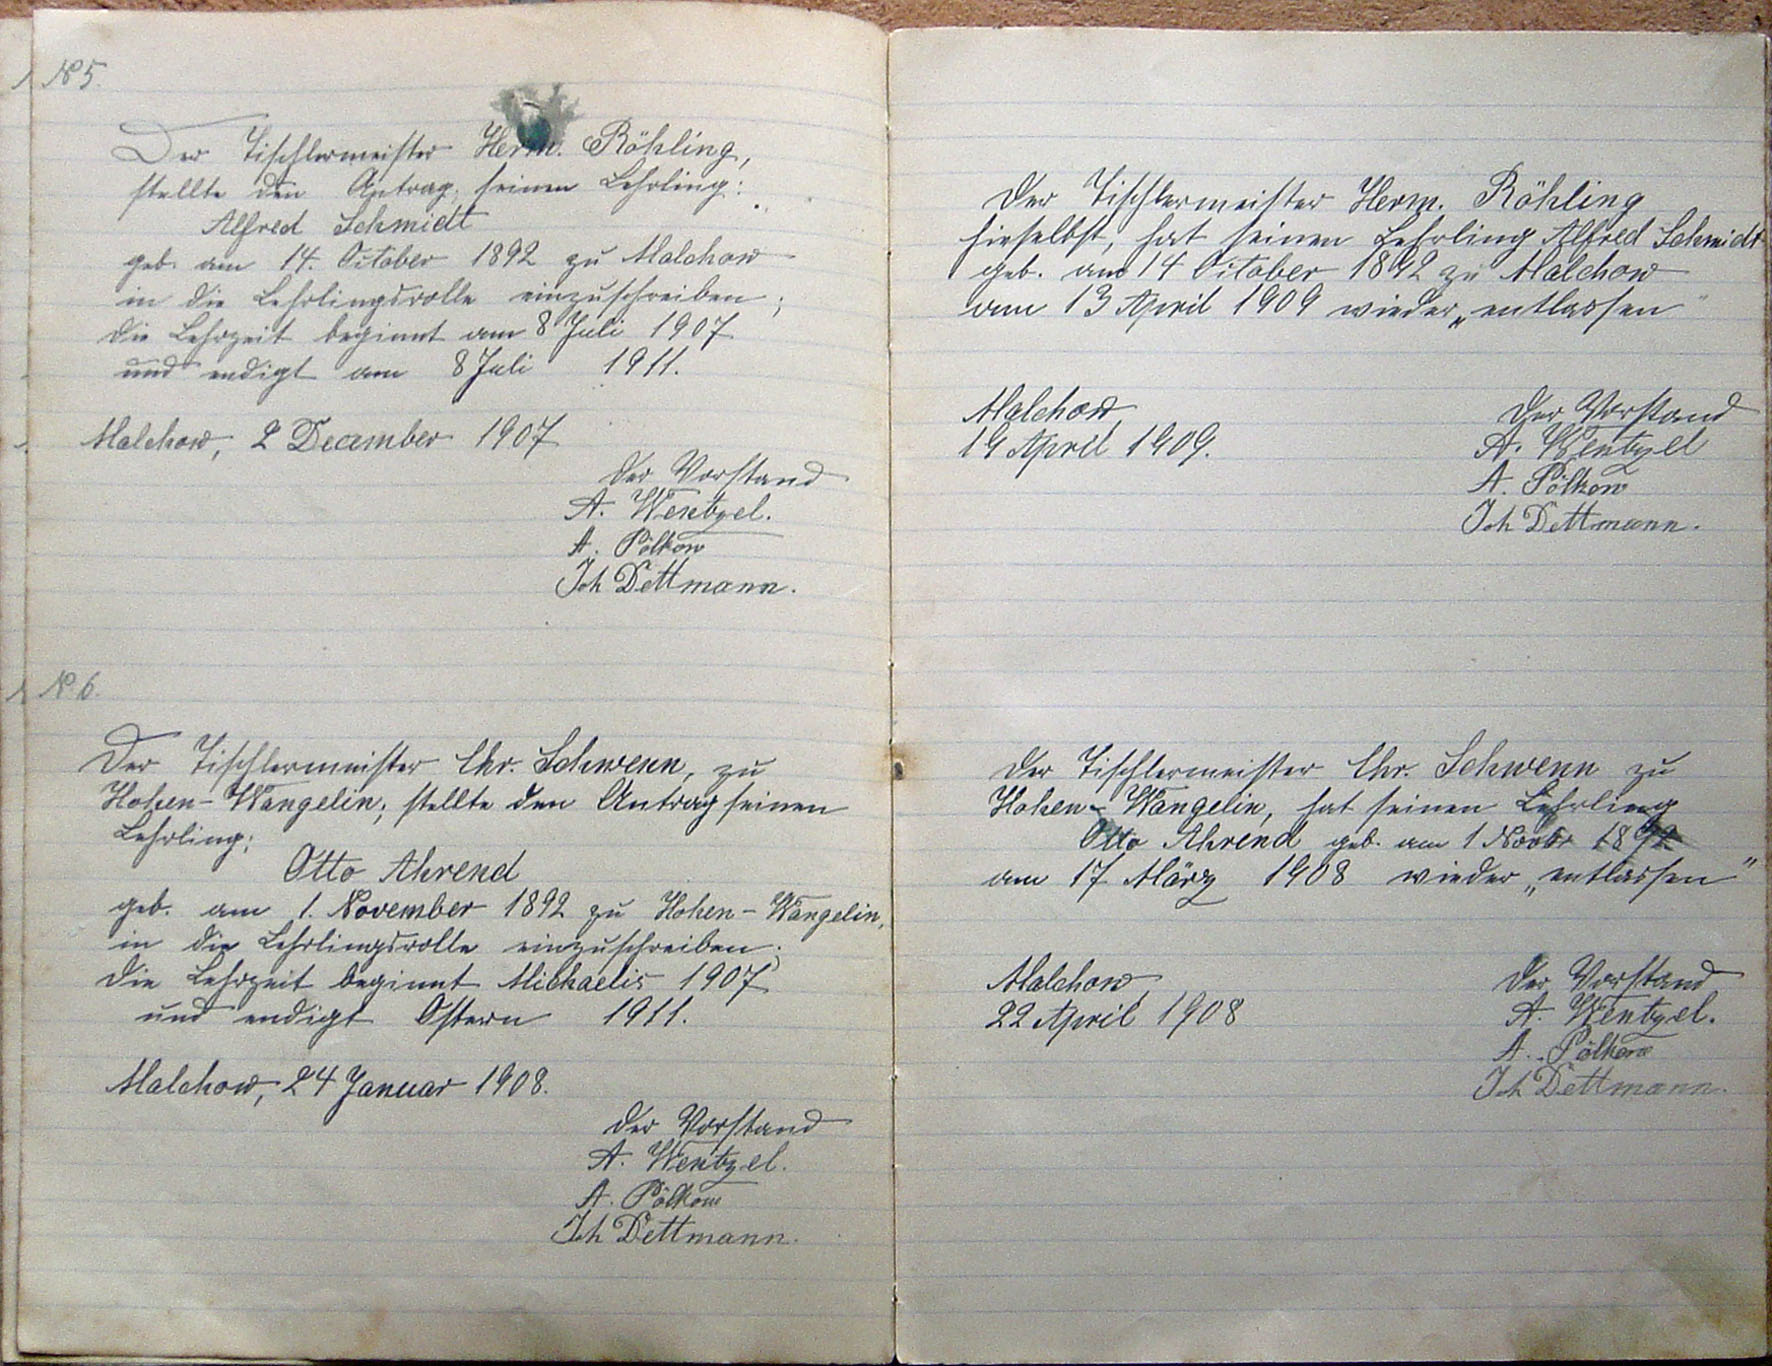 No 5.
Der Tischlermeister Herm. Röhling,
stellte den Antrag, seinen Lehrling:
Alfred Schmidt
geb. am 14. October 1892 zu Malchow
in die Lehrlingsrolle einzuschreiben;
die Lehrzeit beginnt am 8 Juli 1907
und endigt am 8 Juli 1911.
Malchow, 2 December 1907
der Vorstand
A. Wentzel.
A. Pölkow
Joh Dettmann.
No 6.
Der Tischlermeister Chr. Schwenn, zu
Hohen-Wangelin, stellte den Antrag seinen
Lehrling:
Otto Ahrend
geb. am 1. November 1892 zu Hohen-Wangelin,
in die Lehrlingsrolle einzuschreiben;
die Lehrzeit beginnt Michaelis 1907
und endigt Ostern 1911.
Malchow, 24 Januar 1908.
der Vorstand
A. Wentzel.
A. Pölkow
Joh Dettmann.
Der Tischlermeister Herm. Röhling
hieselbst, hat seinen Lehrling Alfred Schmidt
geb. am 14 October 1892 zu Malchow
am 13 April 1909 wieder „entlassen"
Malchow
19 April 1909.
der Vorstand
A. Wentzel
A. Pölkow
Joh Dettmann.
Der Tischlermeister Chr. Schwenn zu
Hohen-Wangelin, hat seinen Lehrling
Otto Ahrend geb. am 1 Novbr 1892
am 17 März 1908 wieder „entlassen"
Malchow
22 April 1908
der Vorstand
A. Wentzel.
A. Pölkow
Joh Dettmann.